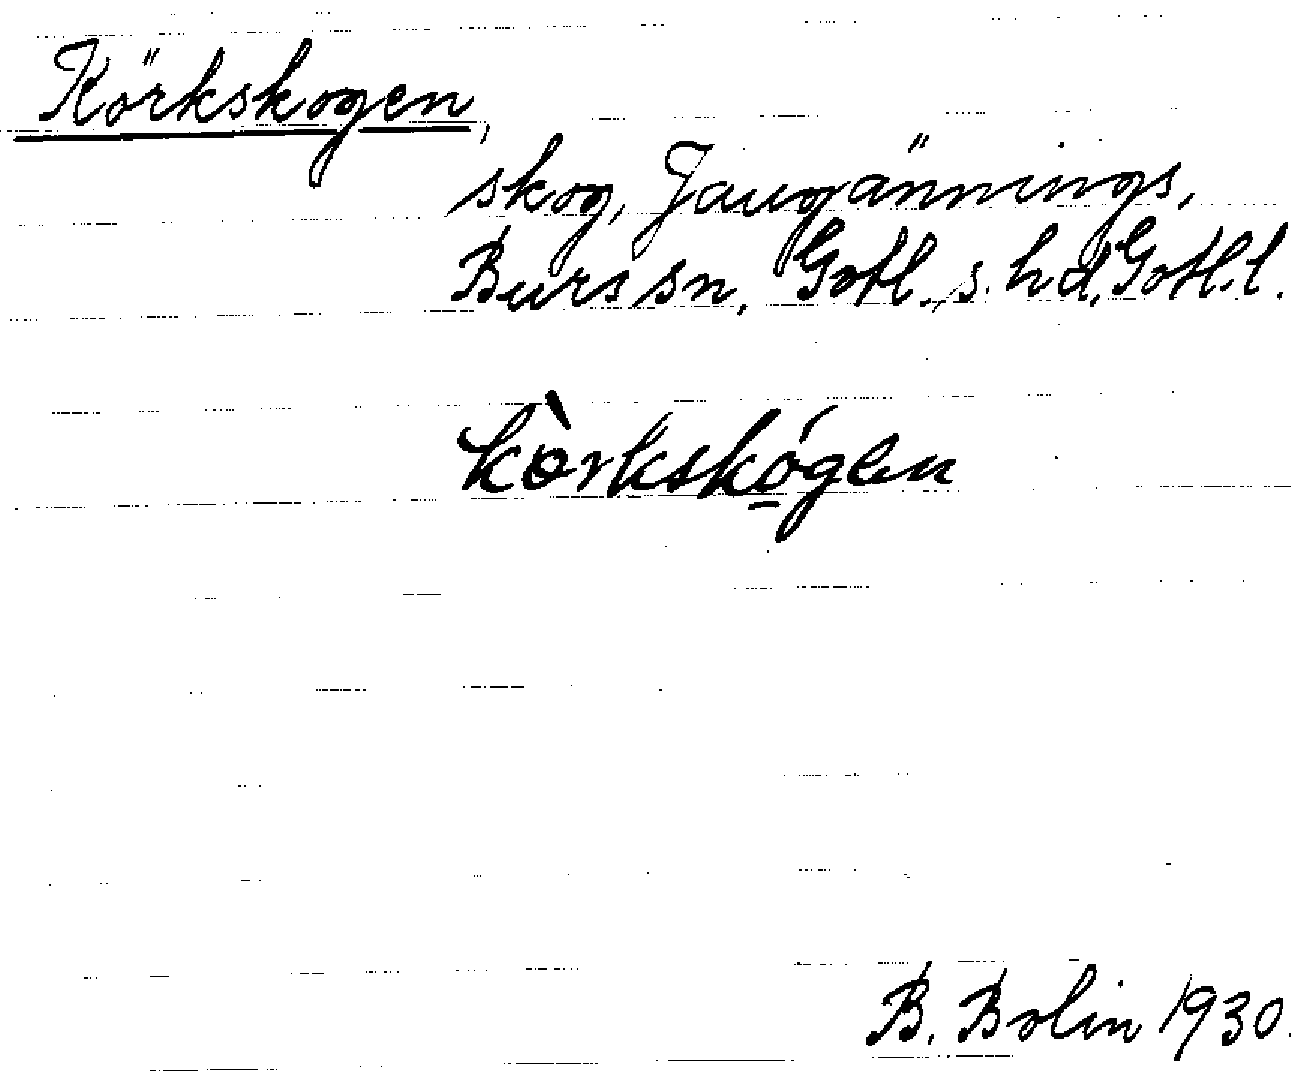 Körkskogen,
skog, Jaugännings,
Burs sn, Gotl. s. hd, Gotl. l.
kòrkskó̱gen
B. Bolin 1930.